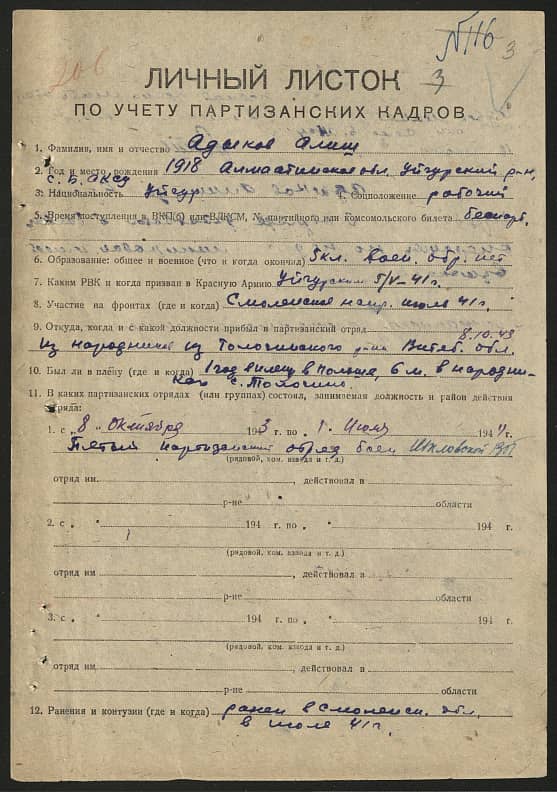 206
N 116
3
ЛИЧНЫЙ ЛИСТОК 3
ПО УЧЕТУ ПАРТИЗАНСКИХ КАДРОВ
1. Фамилия, имя и отчество Адыков Алиш
2. Год и место рождения 1918 Алмаатинская обл. Уйгурский рай,
с. Б. Аксу
3. Национальность Уйгур 4. Соцположение рабочий
5. Время поступления в ВКП(б) или ВЛКСМ, № партийного или комсомольского билета беспарт.
6. Образование: общее и военное (что и когда окончил) 5 кл. Воен. обр. нет
7. Каким РВК и когда призван в Красную Армию Уйгурским 5/V-41 г.
8. Участие на фронтах (где и когда) Смоленское напр. июль 41 г.
9. Откуда, когда и с какой должности прибыл в партизанский отряд 8.10.43
из народников из Толочинского рна Витеб. обл.
10. Был ли в плену (где и когда) 1 год в плену в Польше, 6 м. в народни-
ках с. Толочино.
11. В каких партизанских отрядах (или группах) состоял, занимаемая должность и район действия
отряда:
1. с „8 „ Октября 1943 г. по „ 1 „ Июля 1944 г.
Пятый партизанский отряд боец Шкловской
(рядовой, ком. взвода и т. д.)
отряд им. , действовал в
р-не области
2. с „ „ 194 г. по „ „ 194 г.
(рядовой, ком. взвода и т. д.)
отряд им , действовал в
р-не области
3. с „ „ 194 г. по „ „ 194 г.
(рядовой, ком. взвода и т. д.)
отряд им. , действовал в
р-не области
12. Ранения и контузии (где и когда) ранен в Смоленск. обл.
в июле 41 г.